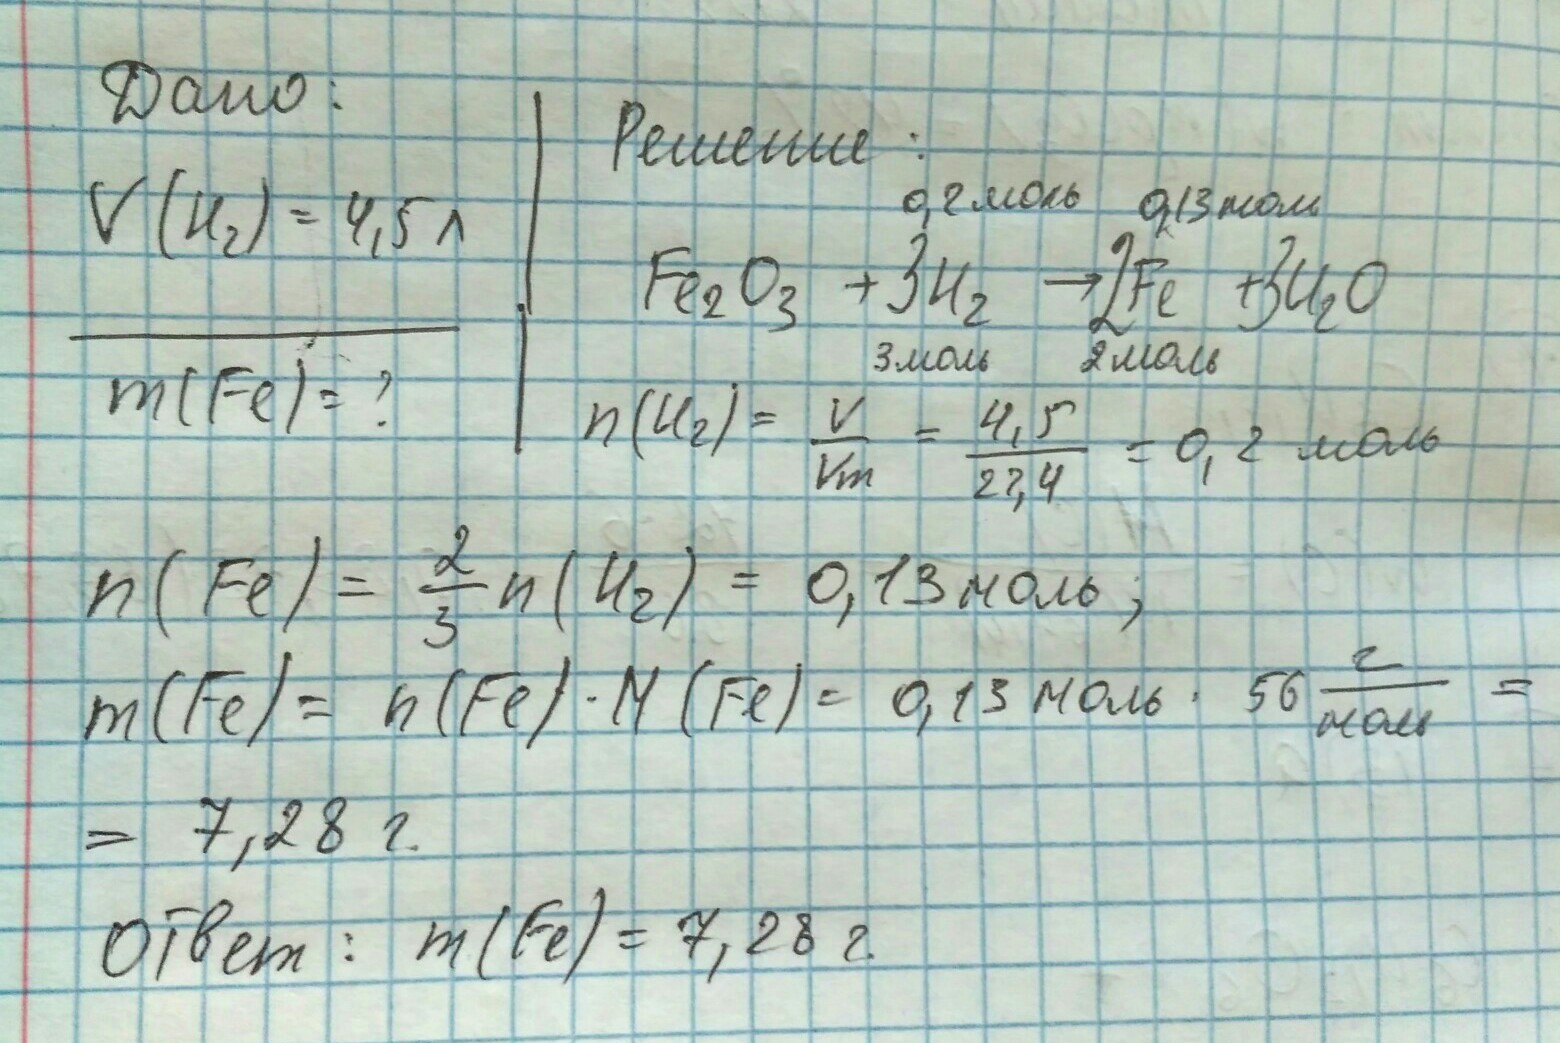 Дано:
V(H₂) = 4,5 л
m(Fe) = ?
Решение:
0,2 моль 0,13 моль
Fe₂O₃ + 3H₂ → 2Fe + 3H₂O
3 моль 2 моль
n(H₂) = V/Vm = 4,5/22,4 = 0,2 моль
n(Fe) = 2/3 n(H₂) = 0,13 моль;
m(Fe) = n(Fe) · M(Fe) = 0,13 моль · 56 г/моль =
= 7,28 г.
Ответ: m(Fe) = 7,28 г.